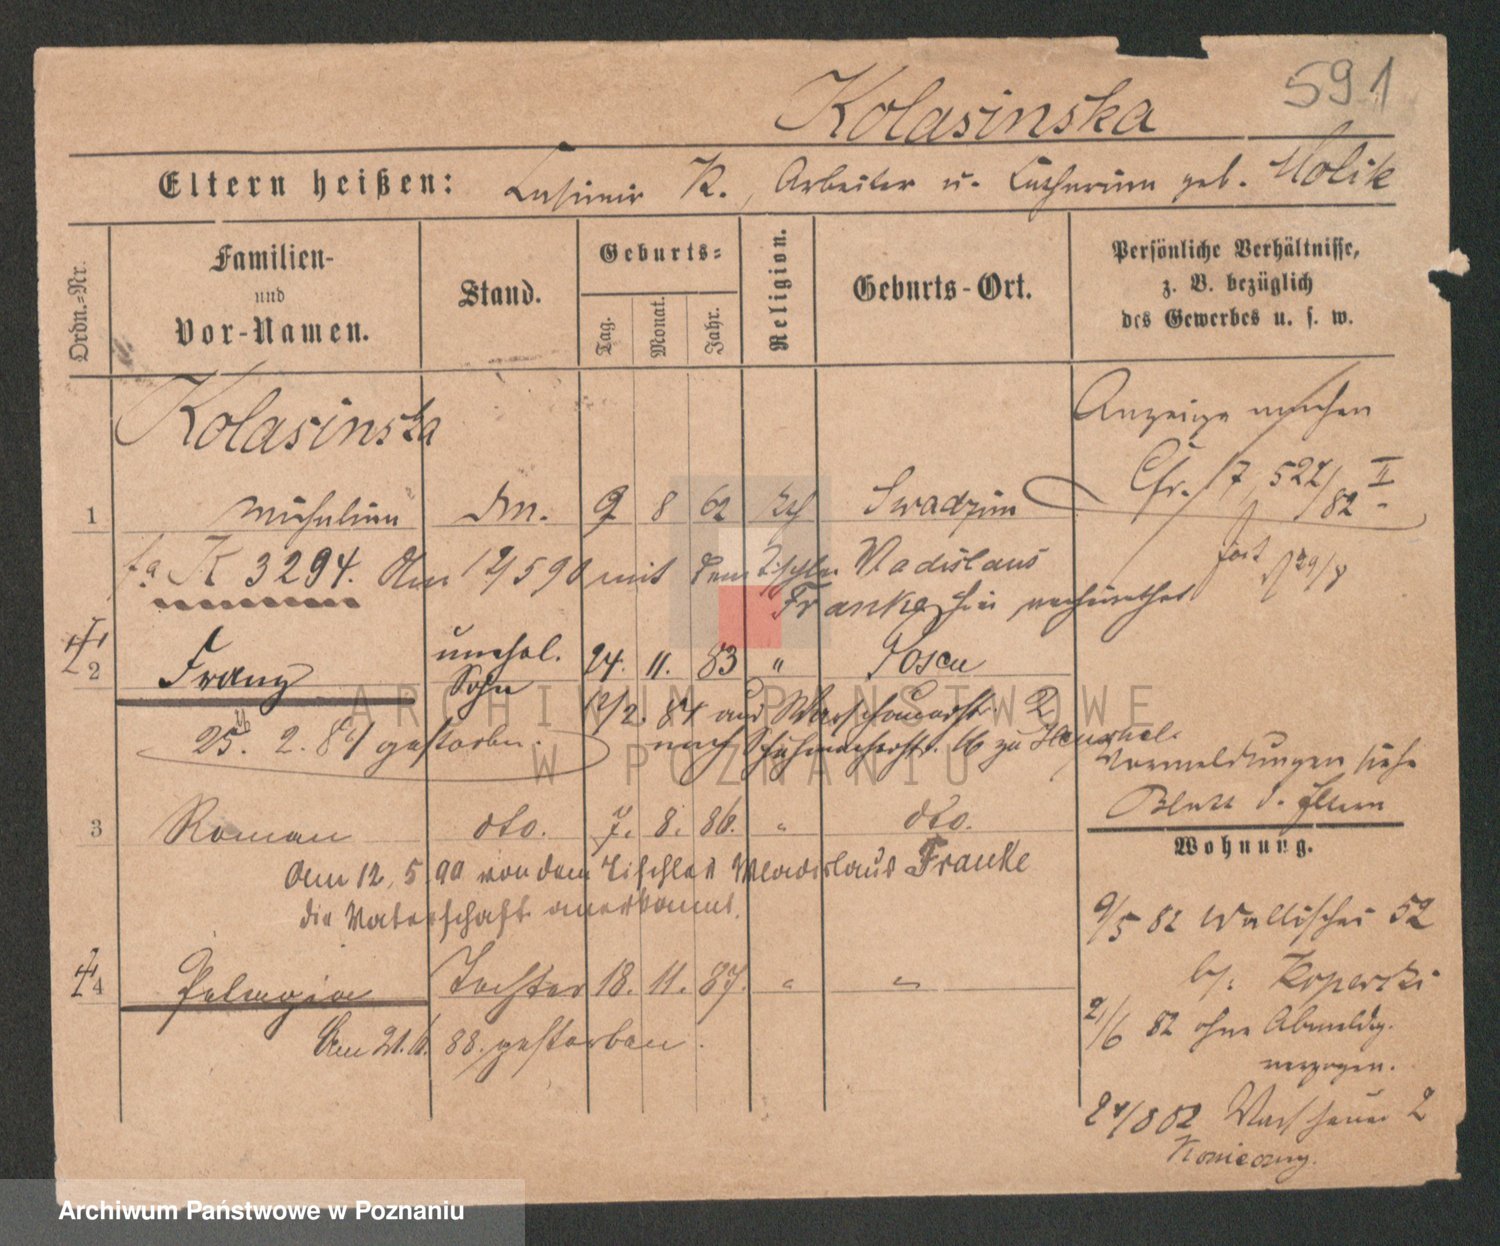 591
Kolasinska
Eltern heißen: Casimir K., Arbeiter u. Catharina geb. Wolik
Ordn.-Nr.
Familien-
und
Vor-Namen.
Stand.
Geburts-
Tag.
Monat.
Jahr.
Religion.
Geburts-Ort.
Persönliche Verhältnisse,
z. B. bezüglich
des Gewerbes u. s. w.
Kolasinska
Anzeige machen
Cfr. 17 527/82 II
1 Michalina Dn. 9 8 62 kth Swadzim
fa K 3294. Am 12/5 90 mit dem Tischler Wladislaus
Franke hier verheirathet
fort 29/8
2 Franz unehel. Sohn 24. 11. 83 " Posen
12/2. 84 aus Warschauerstr. 2
nach Schuhmacherstr. 16 zu
25. 2. 84 gestorben.
Vormeldungen siehe
Blatt d. Eltern
3 Roman dto. 7. 8. 86. " dto.
Am 12. 5. 90 von dem Tischler Wladislaus Franke
die Vaterschaft anerkannt.
Wohnung.
9/5 82 Wallischei 52
b/. Koperski
2/6 82 ohne Abmeldg.
verzogen.
4 Pelagia Tochter 18. 11. 87. " "
Am 21. 6. 88. gestorben.
24/8 82 Warschauer 2
ARCHIWUM PAŃSTWOWE
W POZNANIU
Archiwum Państwowe w Poznaniu